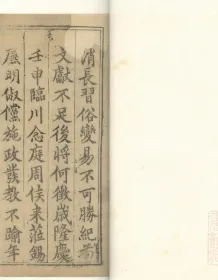 消長習俗變易不可勝紀苟
文獻不足後將何徵歲隆慶
壬申臨川念庭周侯来蒞錫
屢明俶儻施政發教不踰年